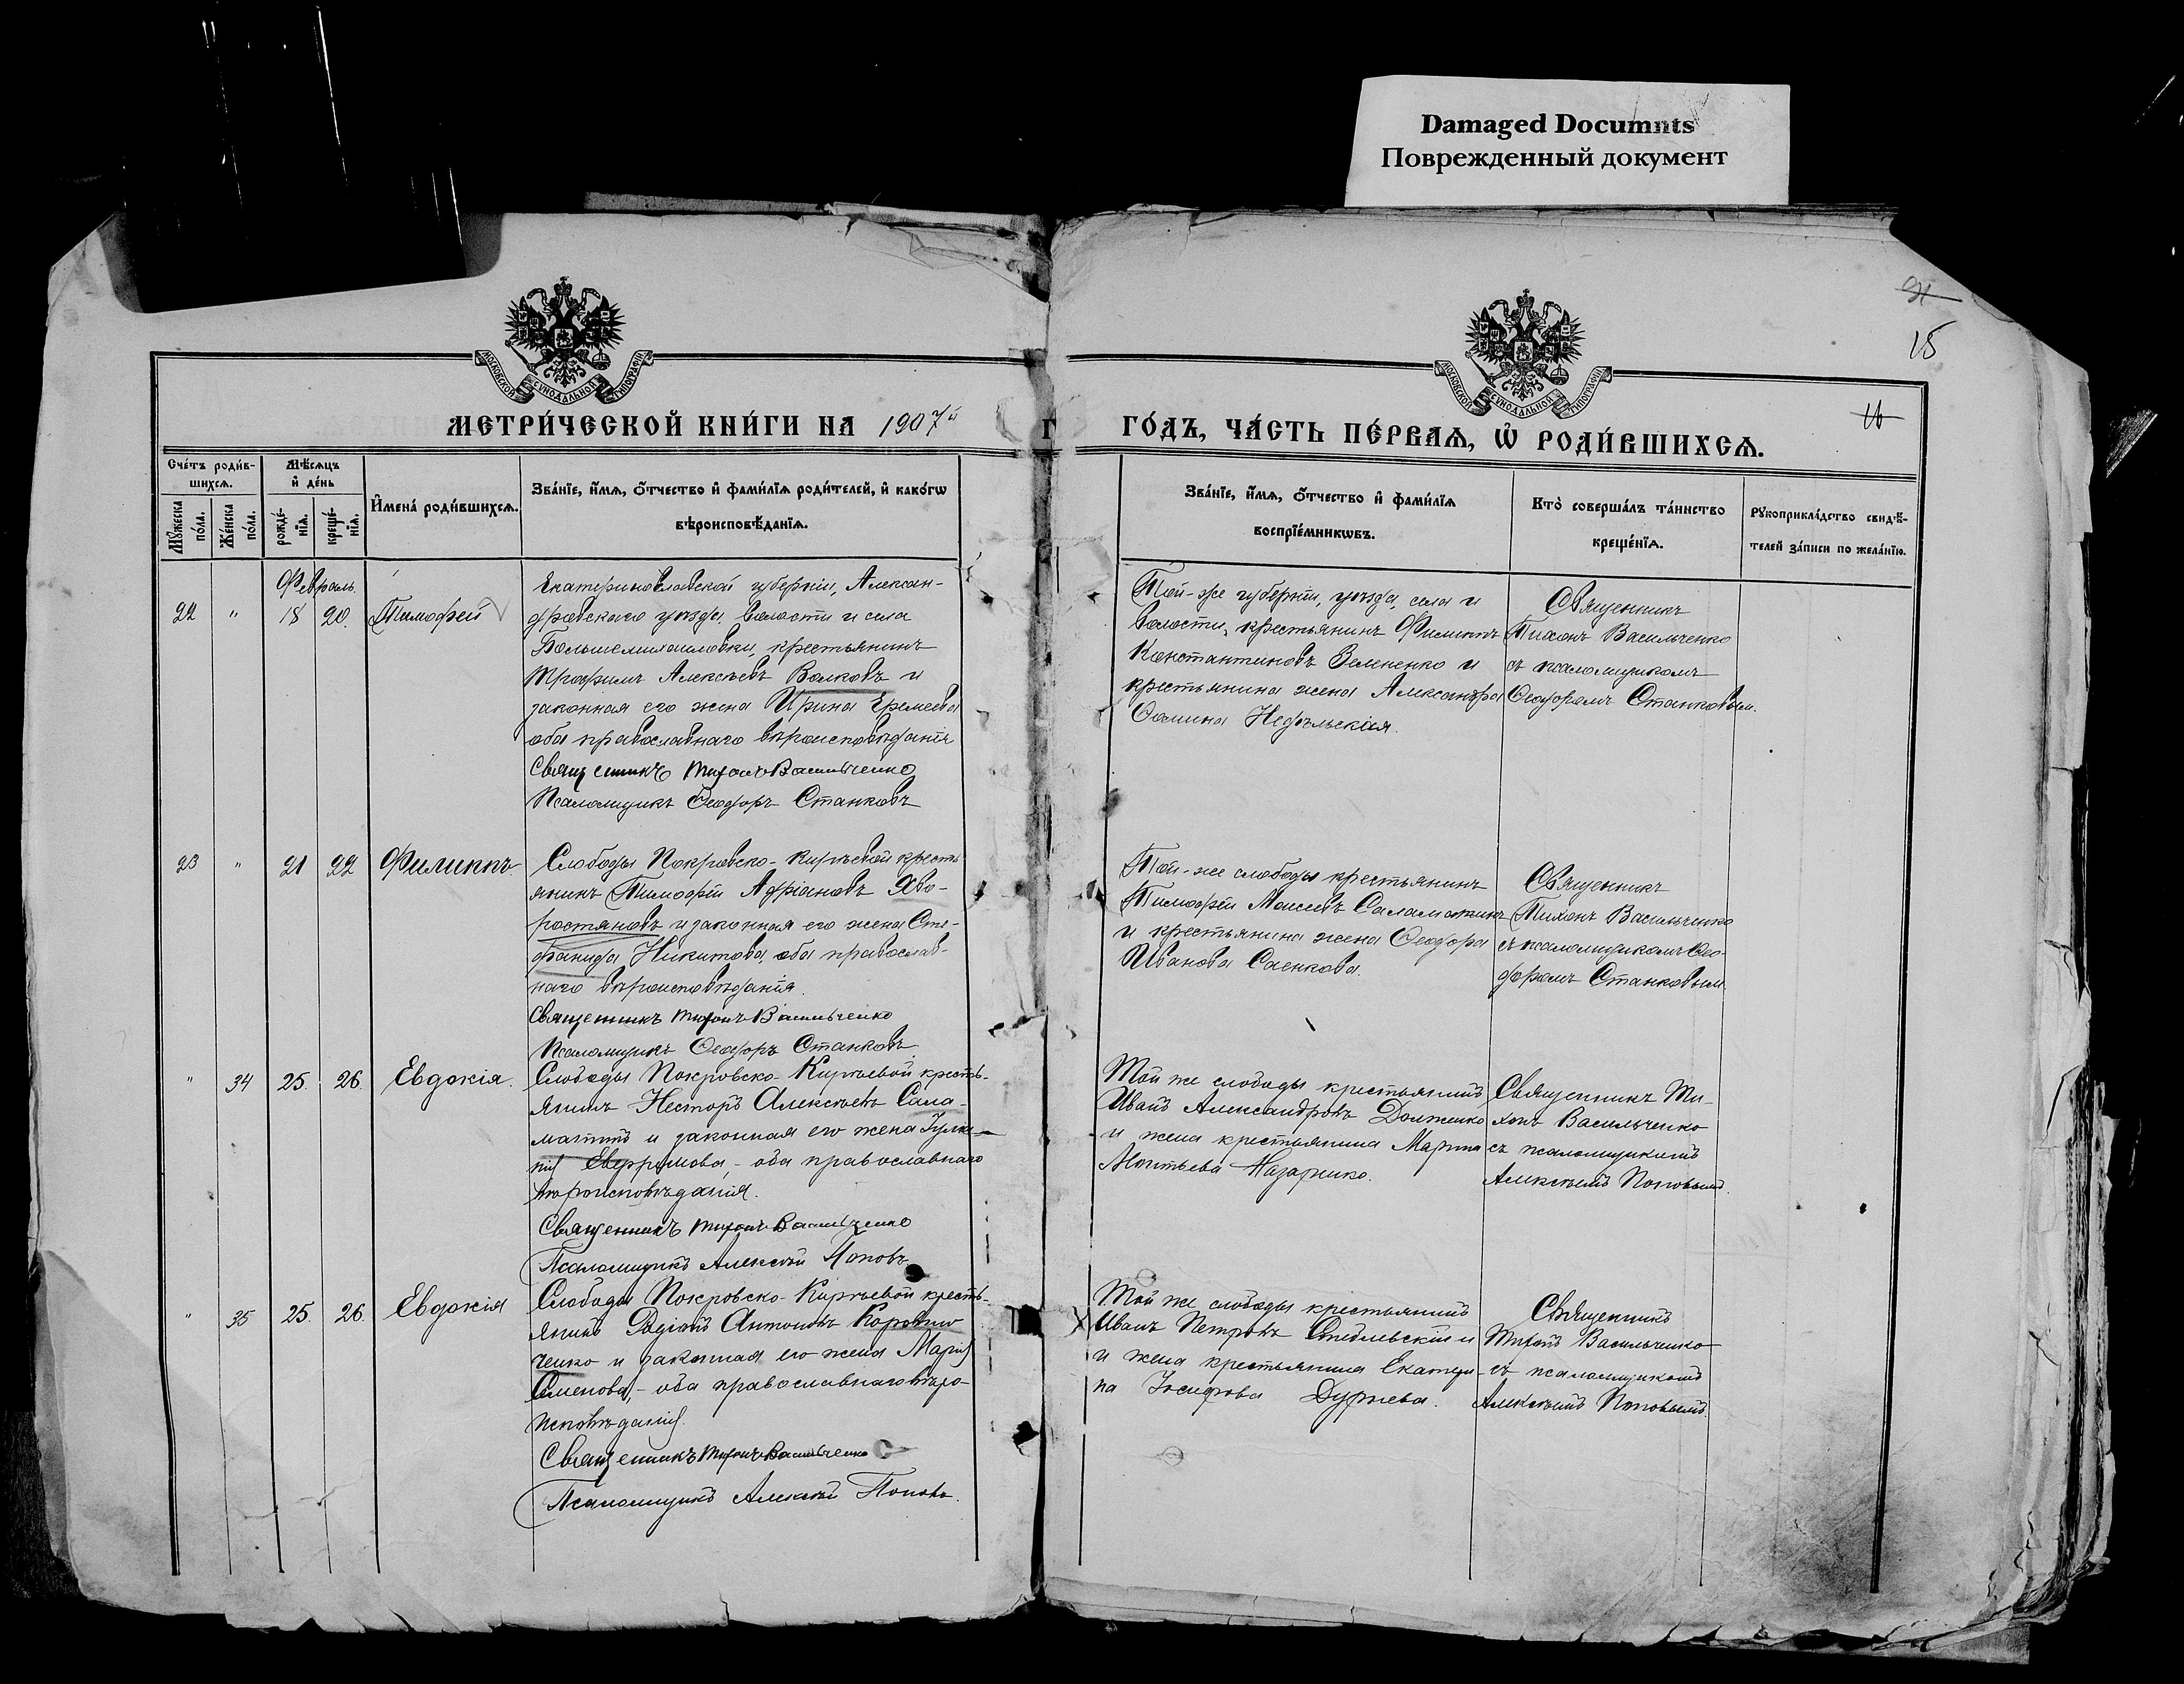 Damaged Documnts
Поврежденный документ
91
15
16
МОСКОВСКОЙ СѴНОДАЛЬНОЙ ТИПОГРАФІИ
МОСКОВСКОЙ СѴНОДАЛЬНОЙ ТИПОГРАФІИ
МЕТРИ́ЧЕСКОЙ КНИ́ГИ НА 1907й
ГО́ДЪ, ЧА́СТЬ ПЕ́РВАѦ, Ѡ҆ РОДИ́ВШИХСѦ.
Сче́тъ роди́в-
шихсѧ.
Мꙋ́жеска по́ла.
Же́нска по́ла.
Мѣ́сѧцъ
и҆ де́нь
рожде́-
нїѧ.
креще́-
нїѧ.
И҆мена̀ роди́вшихсѧ.
Зва́нїе, и҆́мѧ, ѻ҆́тчество и҆ фами́лїѧ роди́телей, и҆ како́гѡ
вѣроисповѣ́данїѧ.
Зва́нїе, и҆́мѧ, ѻ҆́тчество и҆ фами́лїѧ
воспрїе́мникѡвъ.
Кто̀ соверша́лъ та́инство
креще́нїѧ.
Рꙋкоприкла́дство свидѣ́-
телей за́писи по жела́нїю.
Февраль.
22 " 18 20. Тимофей
Екатеринославской губерніи, Алексан-
дровскаго уѣзда, волости и села
Большемихайловки, крестьянинъ
Трофимъ Алексѣевъ Волковъ и
законная его жена Ирина Еремеева
оба православнаго вѣроисповѣданія
Священникъ Тихонъ Васильченко
Псаломщикъ Ѳеодоръ Станковъ
Той-же губерніи, уѣзда, села и
волости, крестьянинъ Филиппъ
Константиновъ Зелененко и
крестьянина жена Александра
Ѳомина
Священникъ
Тихонъ Васильченко
съ псаломщикомъ
Ѳеодоромъ Станковым.
23 " 21 22 Филиппъ
Слободы Покровско-Кирѣевой кресть
янинъ Тимофей Адріановъ Хво-
ростяновъ и законная его жена Сте-
фанида Никитова, оба православ-
наго вѣроисповѣданія.
Священникъ Тихонъ Васильченко
Псаломщикъ Ѳеодоръ Станковъ
Той-же слободы крестьянинъ
Тимофей Моисеевъ Саламатинъ
и крестьянина жена Ѳеодора
Иванова Саенкова.
Священникъ
Тихонъ Васильченко
съ псаломщикомъ Ѳео-
доромъ Станковым
" 34 25. 26. Евдокія.
Слободы Покровско-Кирѣевой кресть-
янинъ Несторъ Алексѣевъ Сала-
матинъ и законная его жена Гулика-
нія Евфимова, - оба православнаго
вѣроисповѣданія.
Священникъ Тихонъ Васильченко
Псаломщикъ Алексѣй Поповъ
Той же слободы крестьянинъ
Иванъ Александровъ Долженко
и жена крестьянина Марина
Леонтьева Назаренко.
Священникъ Ти-
хонъ Васильченко
съ псаломщикомъ
Алексѣемъ Поповымъ.
" 35 25. 26. Евдокія
Слободы Покровско-Кирѣевой кресть-
янинъ Родіонъ Антоновъ Коровни
ченко и законная его жена Марія
Семенова, - оба православнаго вѣро-
исповѣданія.
Священникъ Тихонъ Васильченко
Псаломщикъ Алексѣй Поповъ.
Той же слободы крестьянинъ
Иванъ Петровъ Стеблевскій и
и жена крестьянина Екатери-
на Іосифова Дурнева.
Священникъ
Тихонъ Васильченко
съ псаломщикомъ
Алексѣемъ Поповымъ.